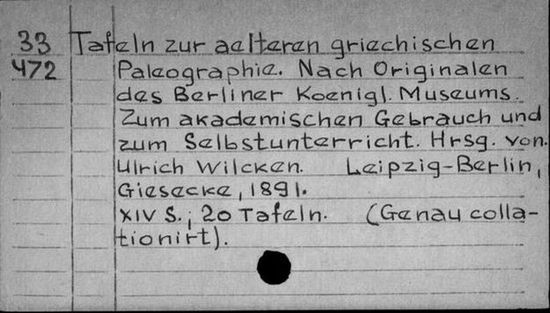 33 Tafeln zur aelteren griechischen
472 Paleographie. Nach Originalen
des Berliner Koenigl. Museums.
Zum akademischen Gebrauch und
zum Selbstunterricht. Hrsg. von
Ulrich Wilcken. Leipzig-Berlin,
Giesecke, 1891.
XIV S.; 20 Tafeln. (Genau colla-
tionirt).